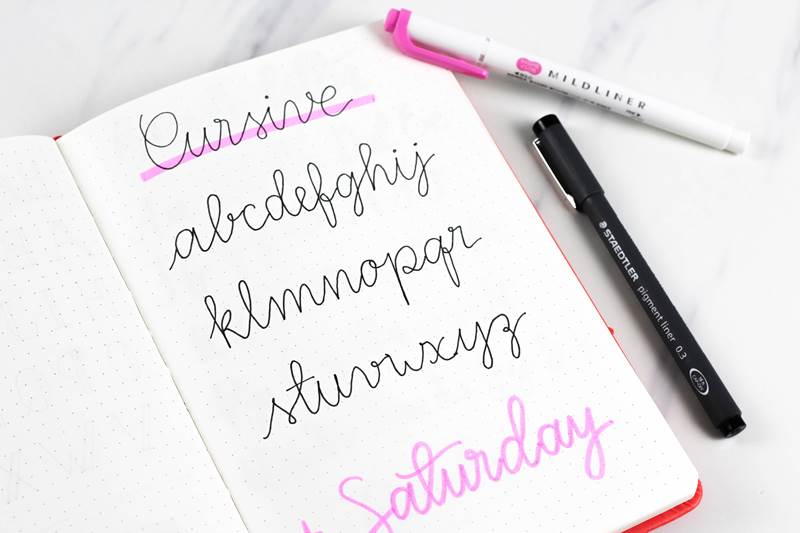 Cursive
abcdefghij
klmnopqr
stuvwxyz
Saturday
MILDLINER
STAEDTLER pigment liner 0.3